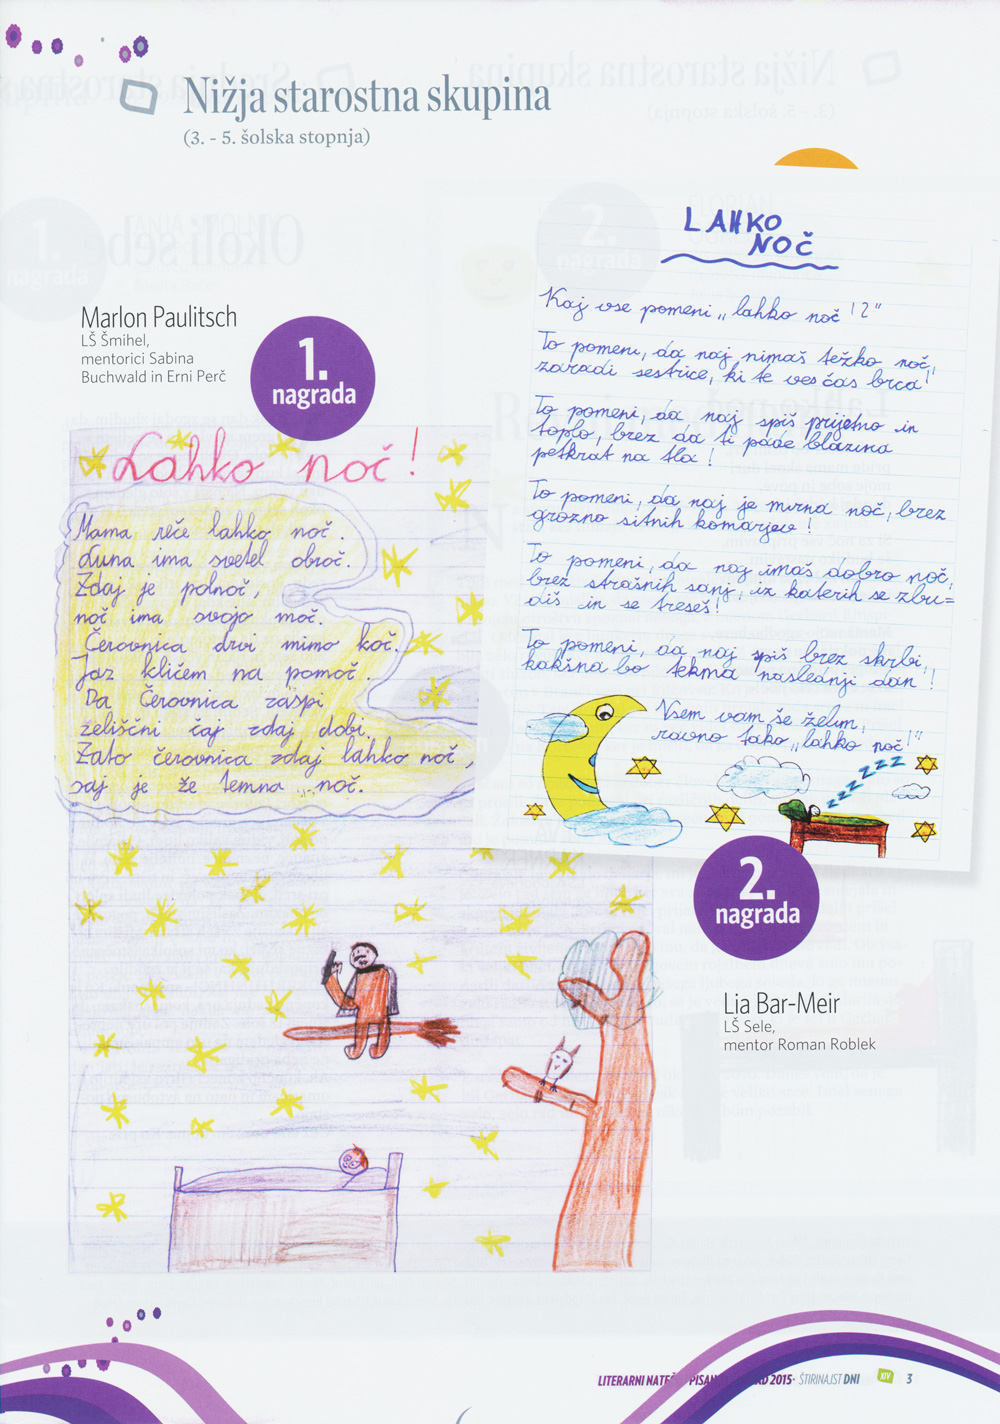 Nižja starostna skupina
(3. - 5. šolska stopnja)
Marlon Paulitsch
LŠ Šmihel,
mentorici Sabina
Buchwald in Erni Perč
1.
nagrada
Lahko noč!
Mama reče lahko noč.
Luna ima svetel obroč.
Zdaj je polnoč,
noč ima svojo moč.
Čerovnica drvi mimo koč.
Jaz kličem na pomoč.
Da Čerovnica zaspi
želiščni čaj zdaj dobi.
Zato čerovnica zdaj lahko noč,
saj je že temna noč.
LAHKO
NOČ
Kaj vse pomeni „lahko noč!?"
To pomeni, da naj nimaš težko noč,
zaradi sestrice, ki te ves čas brca!
To pomeni, da naj spiš prijetno in
toplo, brez da ti pade blazina
petkrat na tla!
To pomeni, da naj je mirna noč, brez
grozno sitnih komarjev!
To pomeni, da naj imaš dobro noč,
brez strašnih sanj, iz katerih se zbu=
diš in se treseš!
To pomeni, da naj spiš brez skrbi,
kakšna bo tekma naslednji dan!
Vsem vam še želim,
ravno tako „lahko noč!"
zzzzzz
2.
nagrada
Lia Bar-Meir
LŠ Sele,
mentor Roman Roblek
LITERARNI NATEČ PISAN 2015· ŠTIRINAJST DNI XIV 3